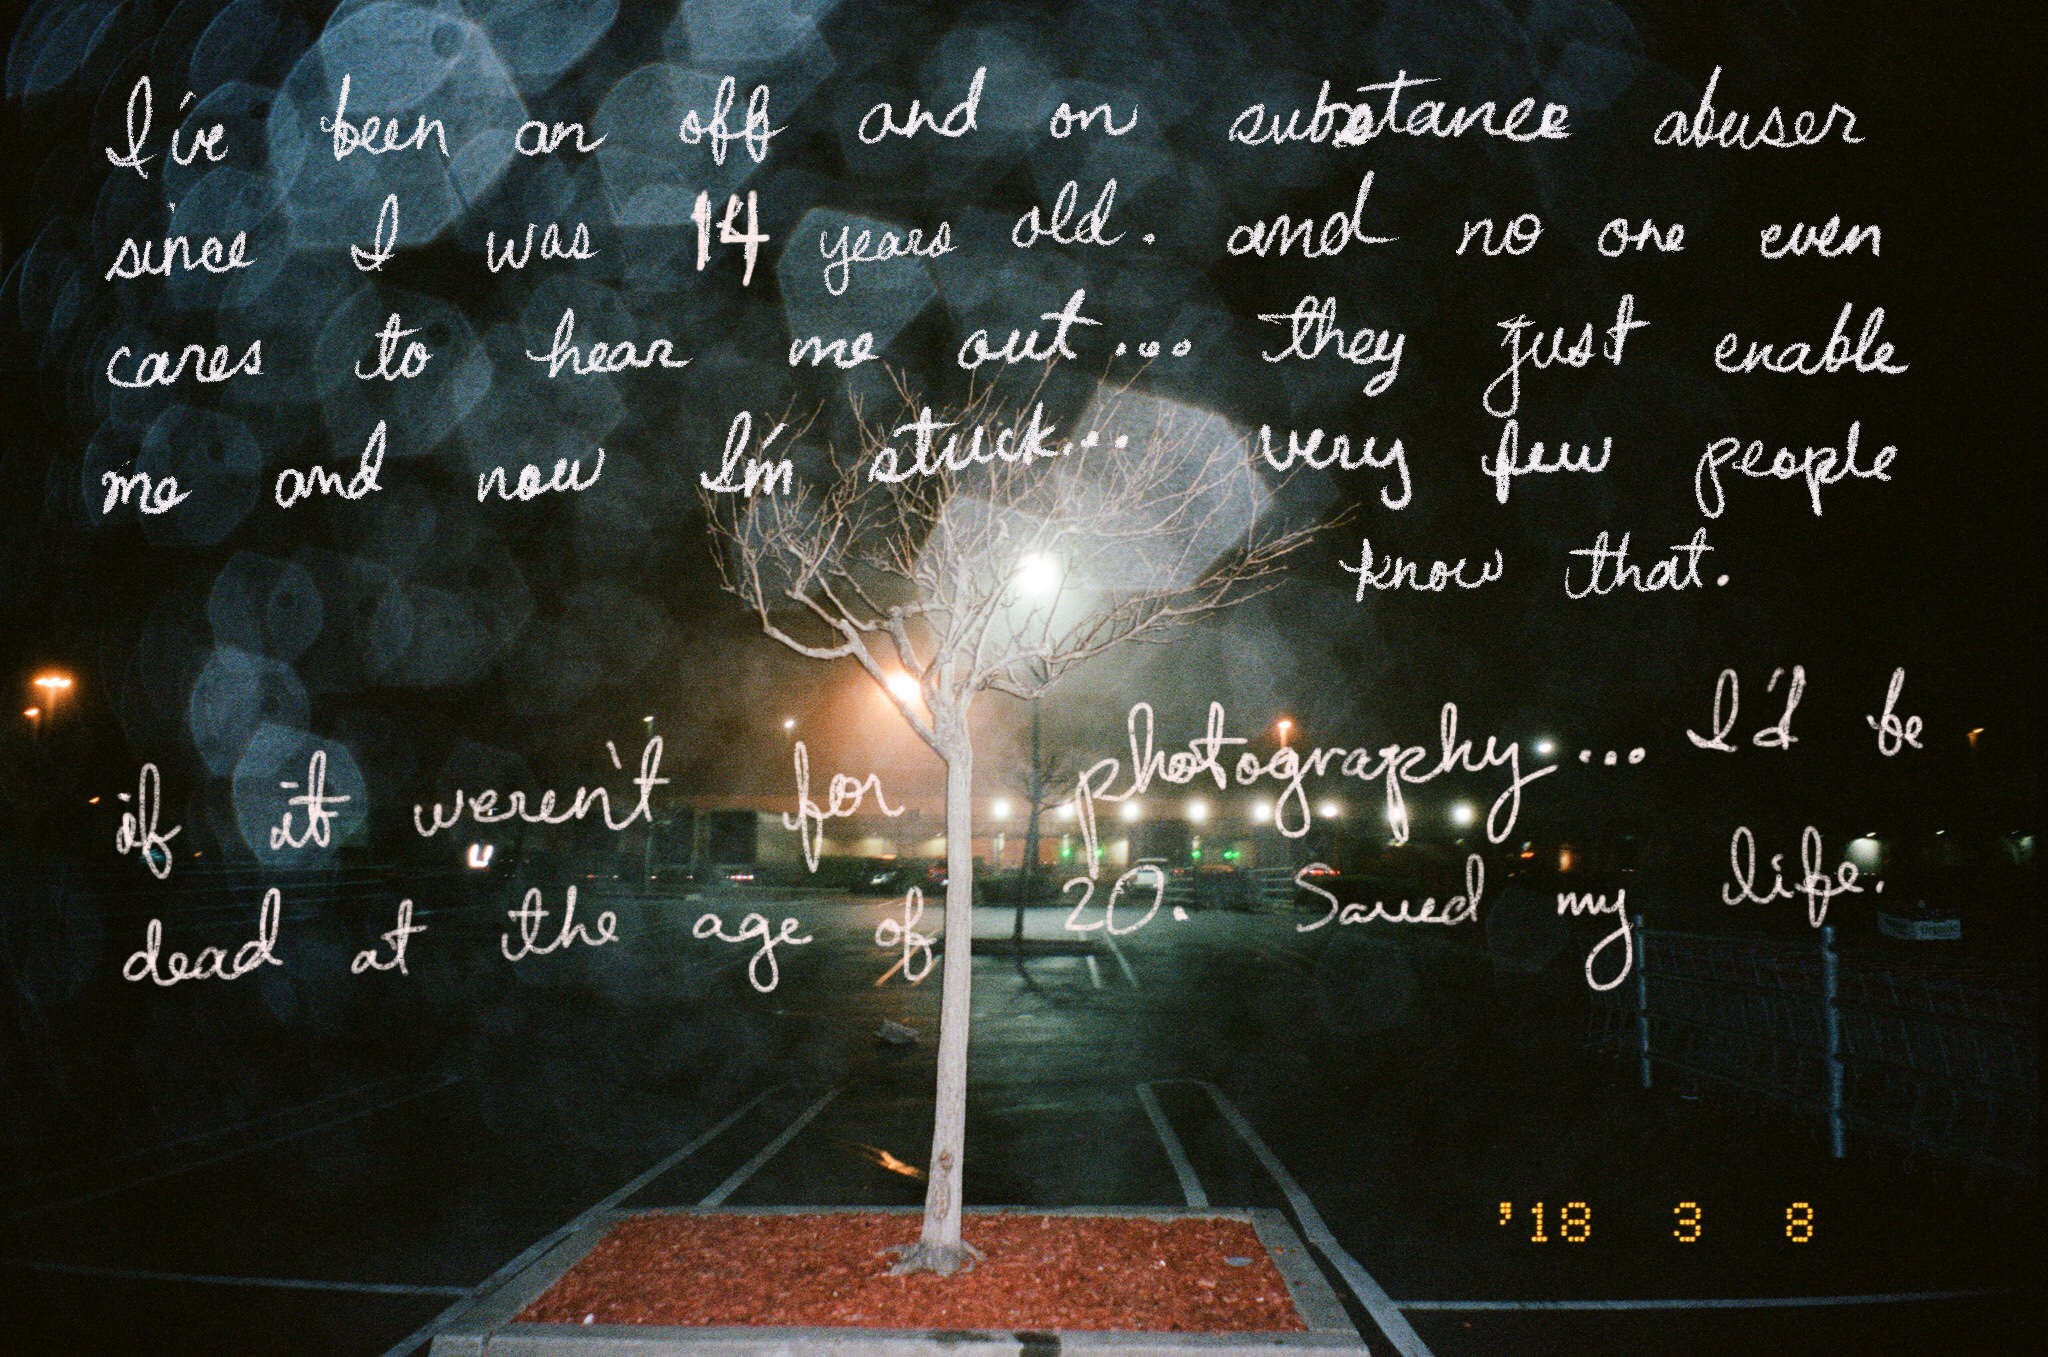 I've been an off and on substance abuser
since I was 14 years old. and no one even
cares to hear me out... they just enable
me and now I'm stuck... very few people
know that.
if it weren't for photography... I'd be
dead at the age of 20. Saved my life.
'18 3 8